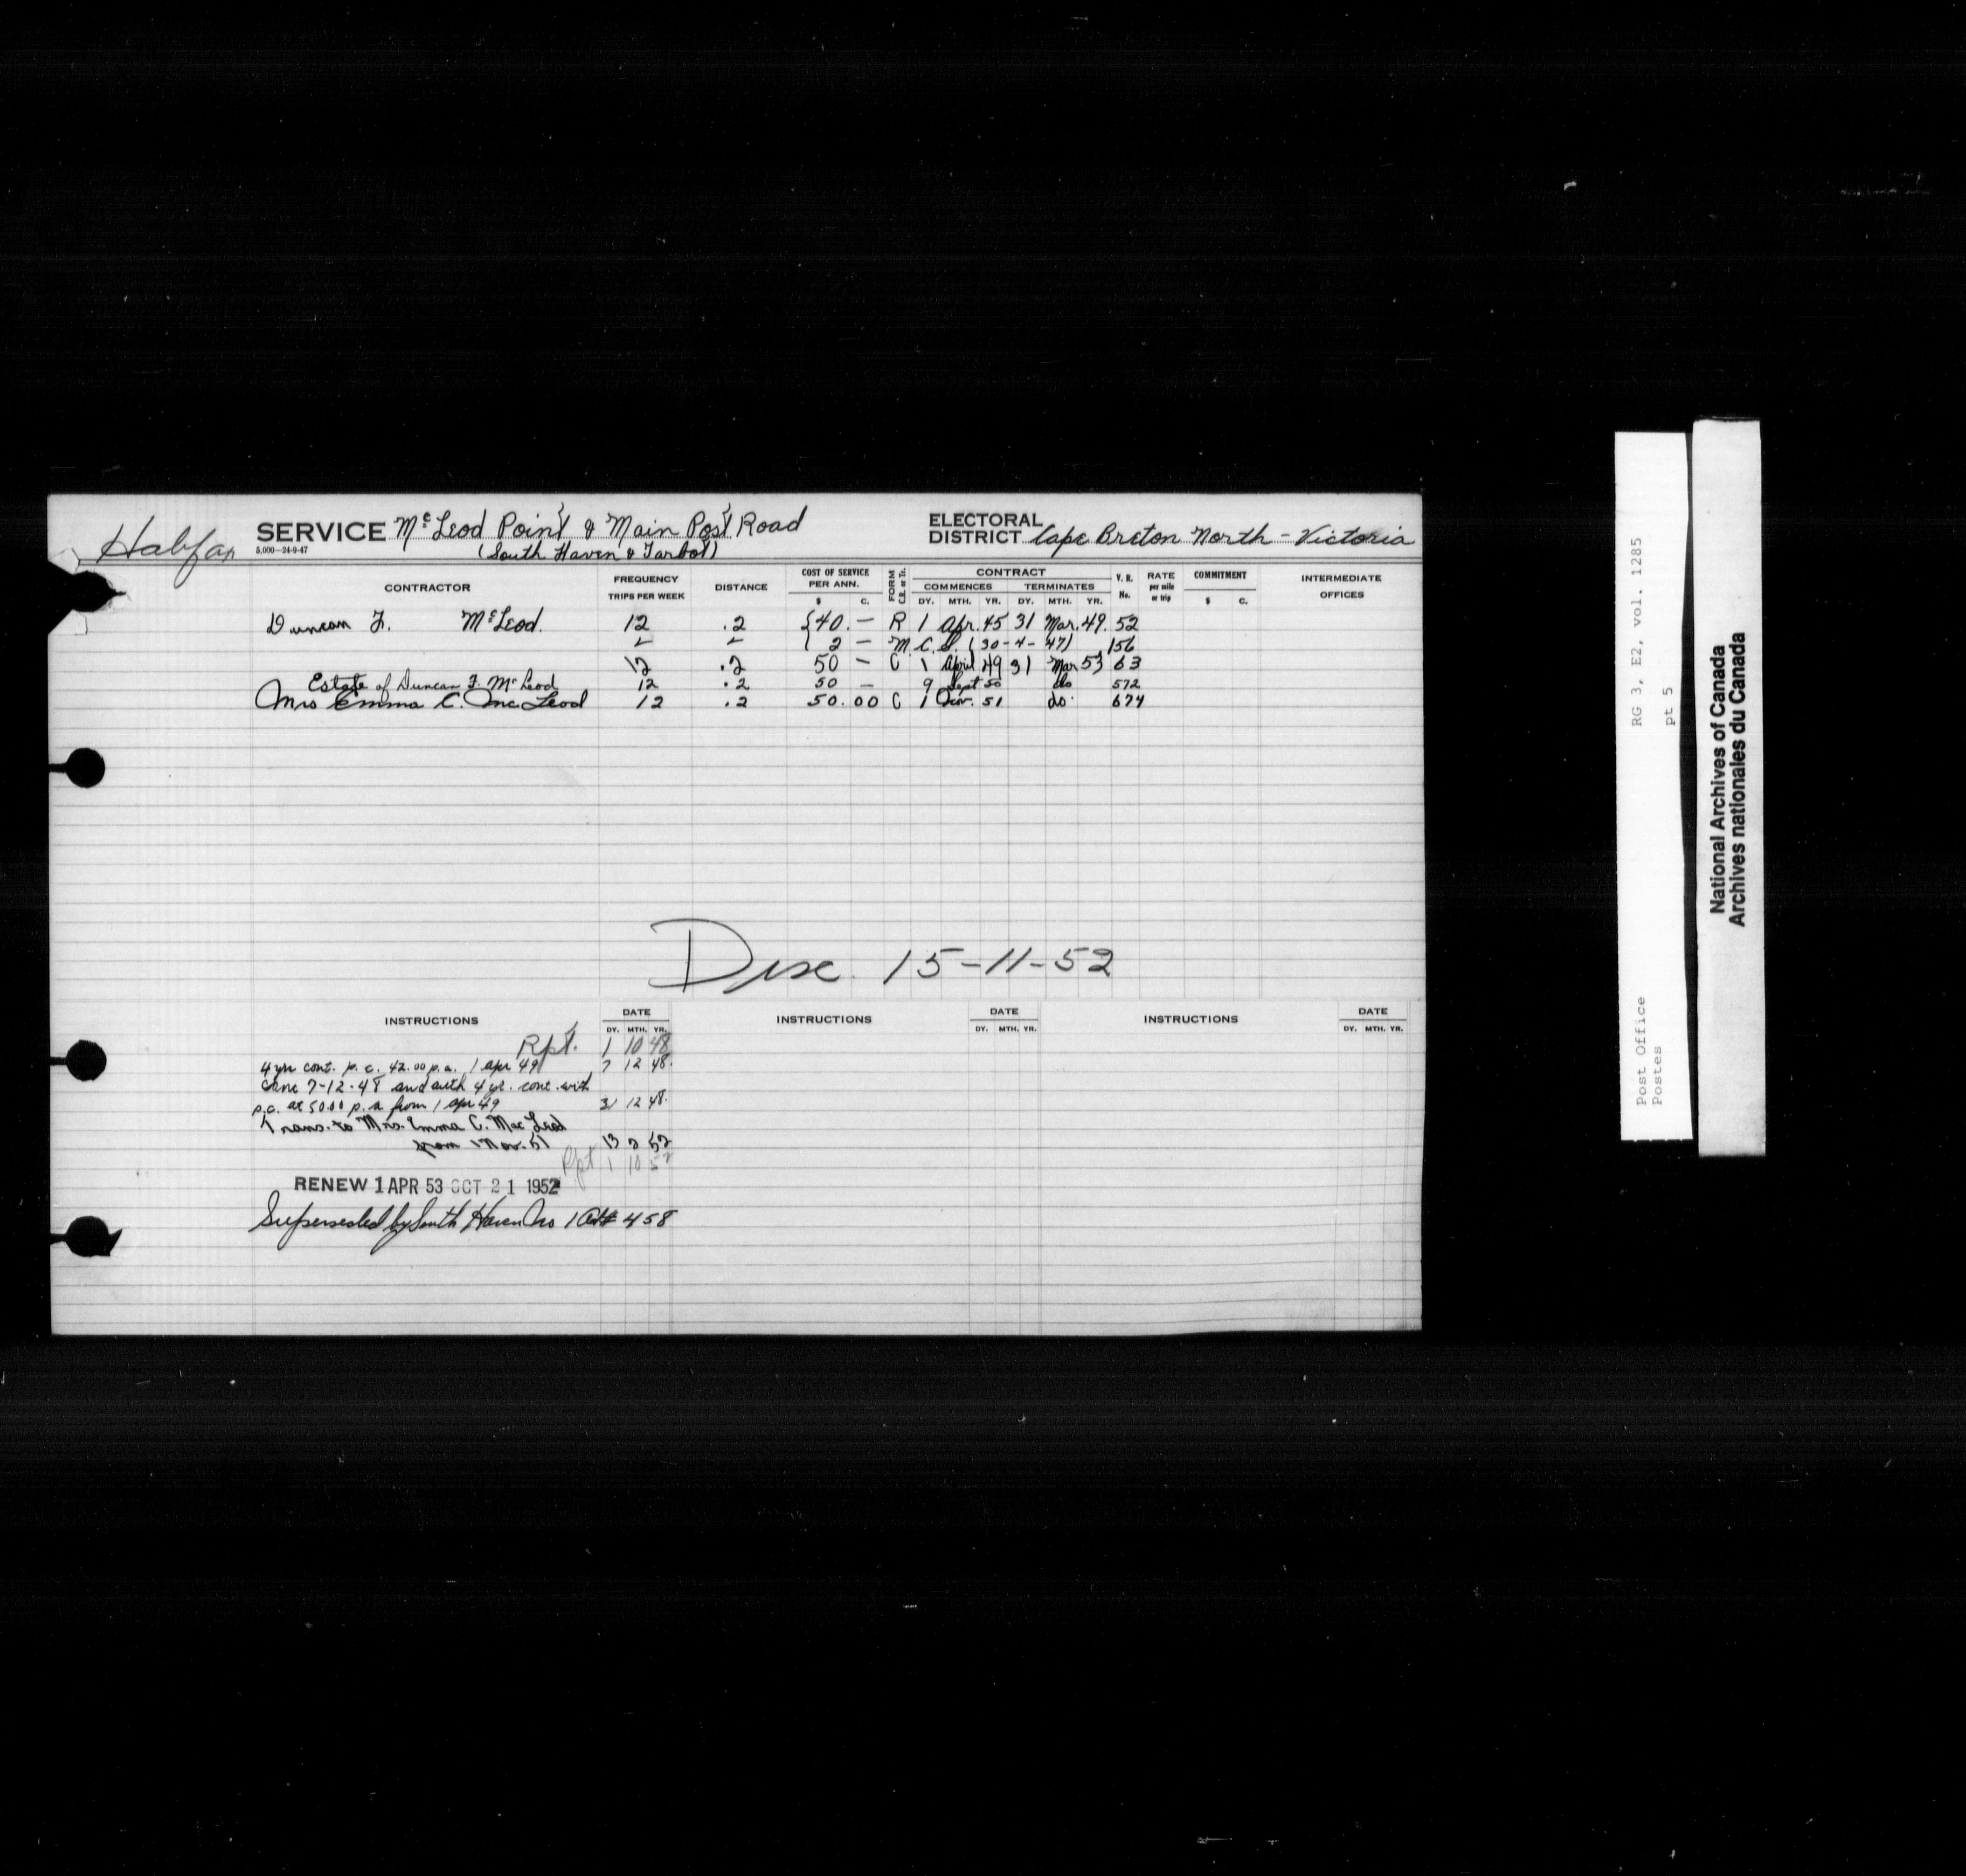 Halifax
SERVICE McLeod Point & Main Post Road
5,000—24-9-47
(South Haven & Tarbot)
ELECTORAL DISTRICT Cape Breton North - Victoria
CONTRACTOR FREQUENCY TRIPS PER WEEK DISTANCE COST OF SERVICE PER ANN. $ C. FORM C.R. or Tr. CONTRACT COMMENCES DY. MTH. YR. TERMINATES DY. MTH. YR. V. R. No. RATE per mile or trip COMMITMENT $ C. INTERMEDIATE OFFICES
Duncan F. McLeod. 12 .2 {40.— R 1 Apr. 45 31 Mar. 49. 52
2 — M.C.S. (30-4-47) 156
12 .2 50 — C 1 April 49 31 Mar 53 63
Estate of Duncan F. McLeod 12 .2 50 — 9 Sept 50 do 572
Mrs Emma C. McLeod 12 .2 50.00 C 1 Nov. 51 do. 674
Disc. 15-11-52
INSTRUCTIONS DATE DY. MTH. YR. INSTRUCTIONS DATE DY. MTH. YR. INSTRUCTIONS DATE DY. MTH. YR.
Rpt. 1 10 48
4 yr cont. p.c. 42.00 p.a. 1 Apr 49 7 12 48.
Canc 7-12-48 and auth 4 yr. cont. with
p.c. at 50.00 p.a from 1 Apr 49 31 12 48.
Trans. to Mrs. Emma C. MacLeod
from 1 Nov. 51 13 2 52
Rpt 1 10 52
RENEW 1 APR 53 OCT 21 1952
Superseded by South Haven No 1 458
RG 3, E2, vol. 1285
pt 5
Post Office
Postes
National Archives of Canada
Archives nationales du Canada